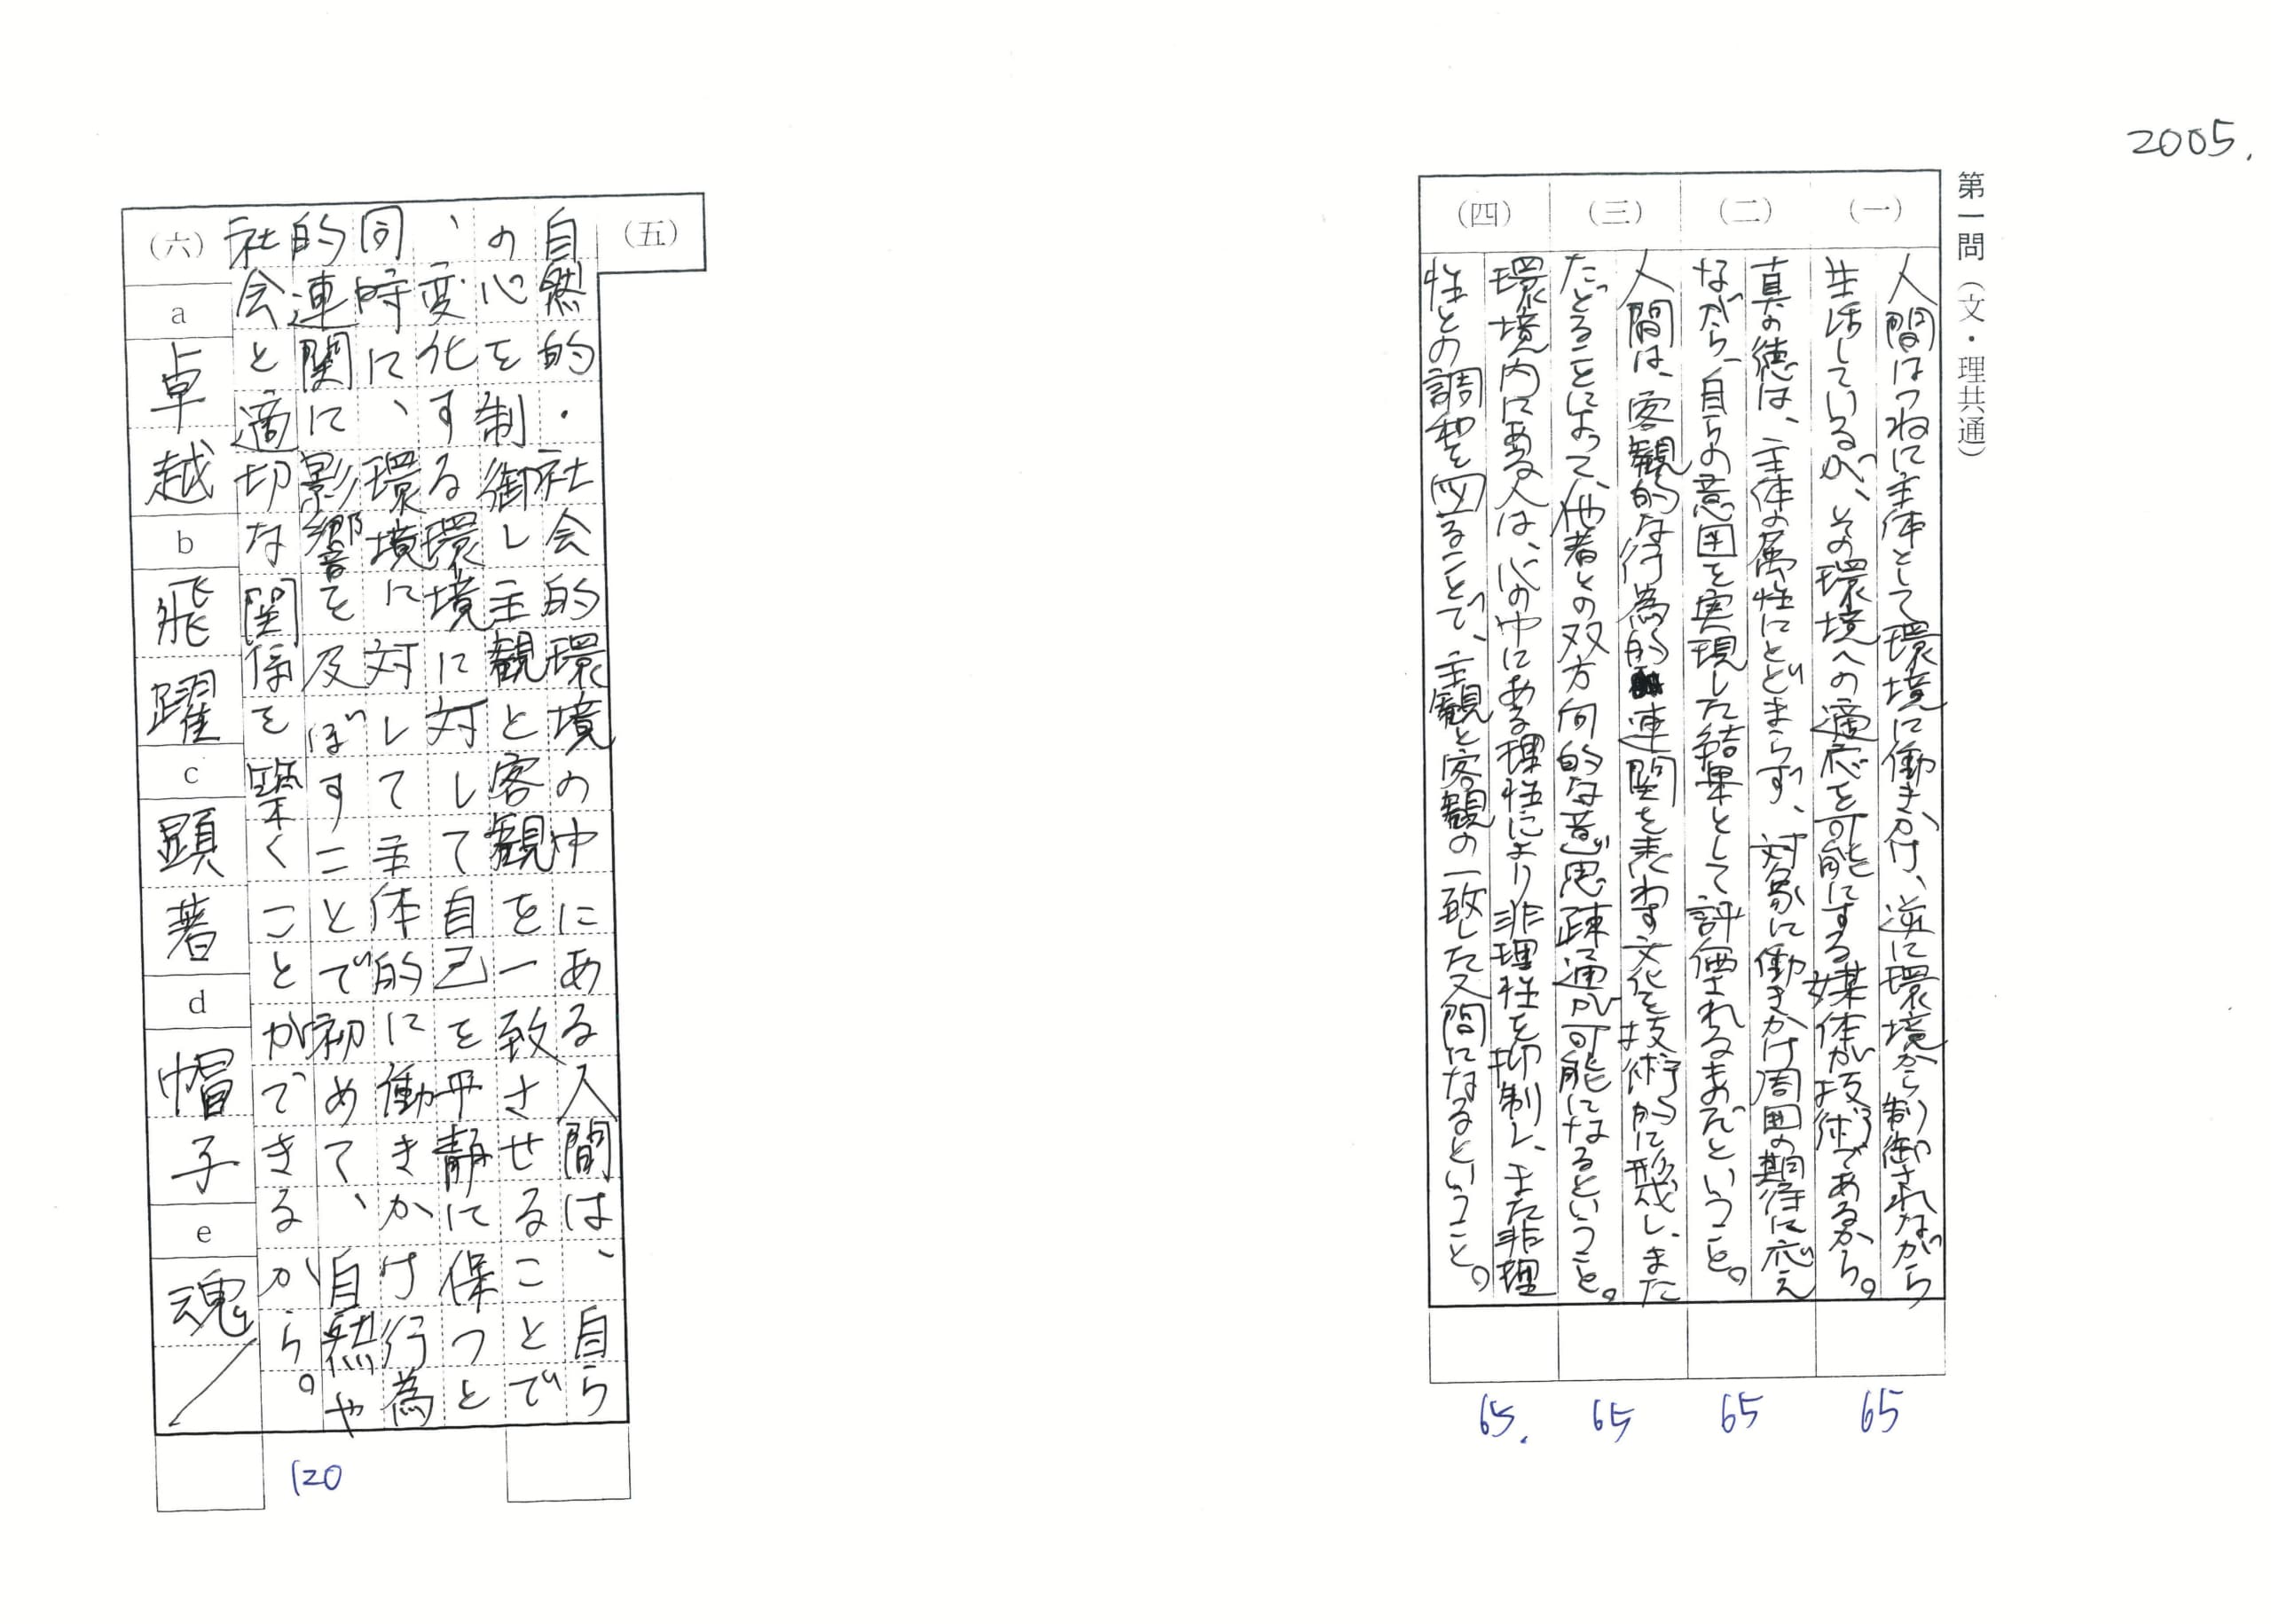 2005.
第一問（文・理共通）
（一）
人間はつねに主体として環境に働きかけ、逆に環境から制御されながら
生活しているが、その環境への適応を可能にする媒体が技術であるから。
（二）
真の徳は、主体の属性にとどまらず、対象に働きかけ周囲の期待に応え
ながら、自らの意図を実現した結果として評価されるものだということ。
（三）
人間は、客観的な行為的連関を表わす文化を技術的に形成し、また
たどることによって、他者との双方向的な意思疎通が可能になるということ。
（四）
環境内にある人は、心の中にある理性により非理性を抑制し、また非理
性との調和を図ることで、主観と客観の一致した人間になるということ。
65
65
65
65.
（五）
自然的・社会的環境の中にある人間は、自ら
の心を制御し主観と客観を一致させることで
、変化する環境に対して自己を平静に保つと
同時に、環境に対して主体的に働きかけ行為
的連関に影響を及ぼすことで初めて、自然や
社会と適切な関係を築くことができるから。
120
（六）
a
卓越
b
飛躍
c
顕著
d
帽子
e
魂